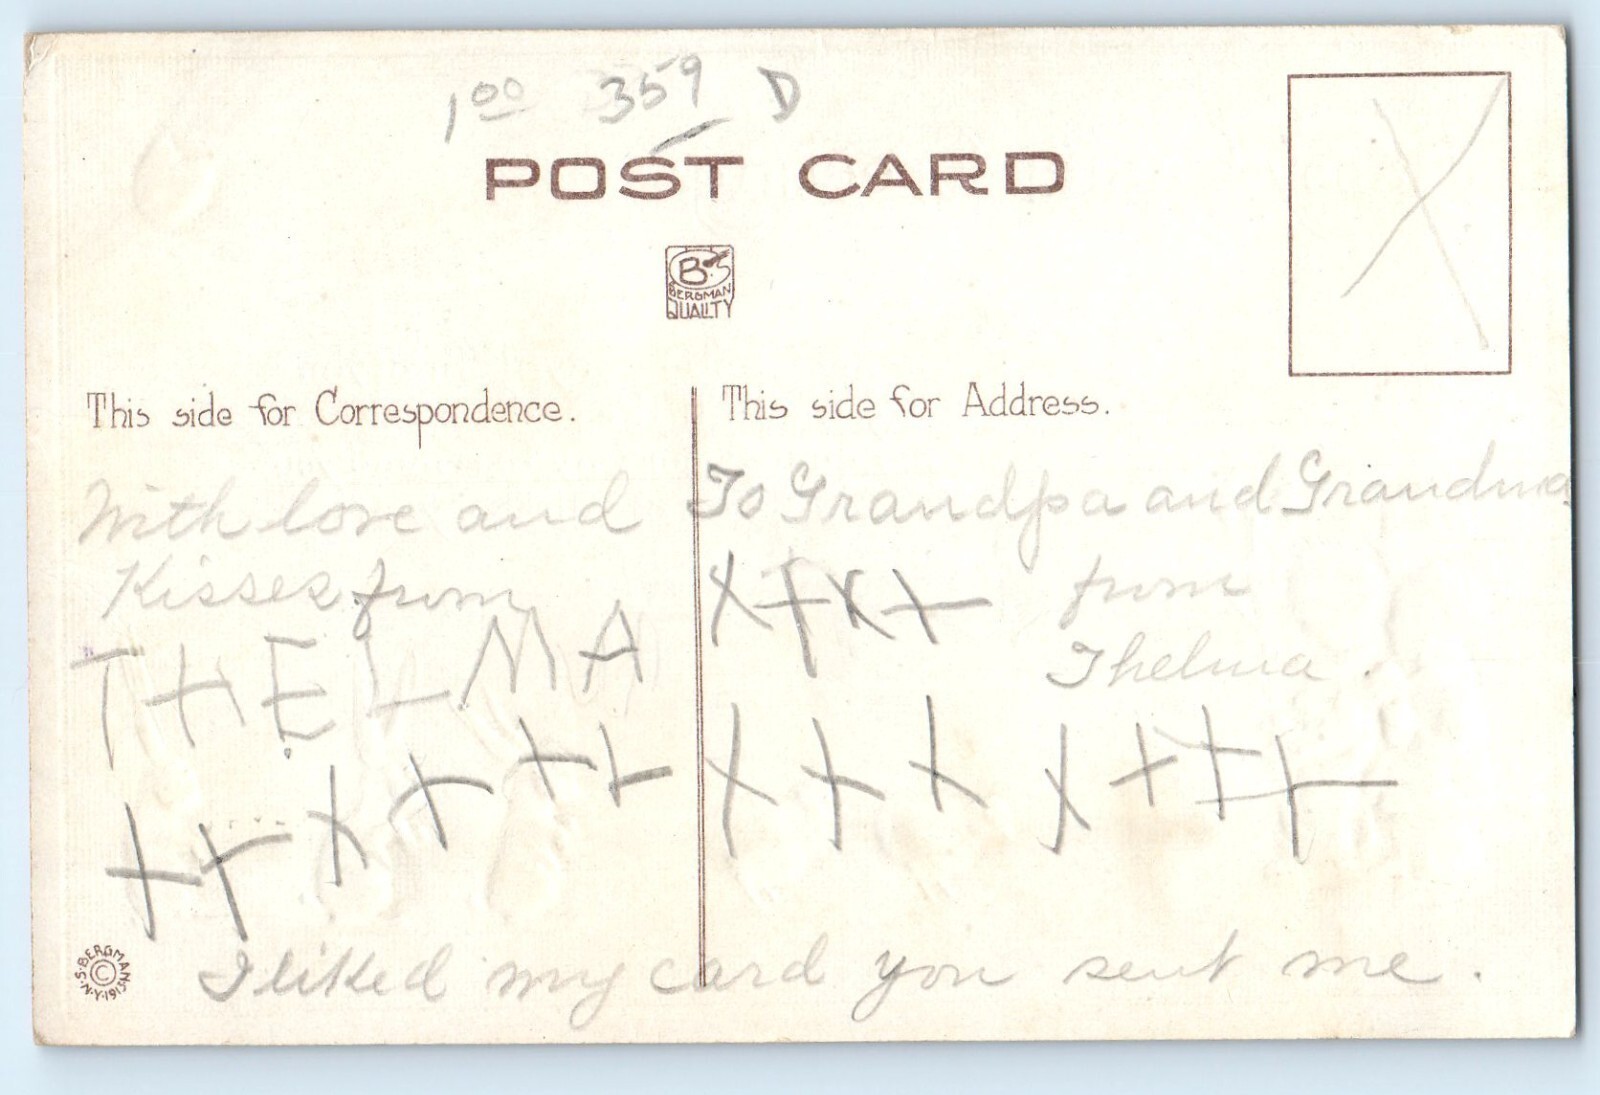 1.00 359 D
POST CARD
B.S
BERGMAN
QUALITY
This side for Correspondence.
This side for Address.
With love and
Kisses from
THELMA
XXXXXX
To Grandpa and Grandma
XXXX from
Thelma.
XXXXXXX
I liked my card you sent me.
S. BERGMAN © N.Y. 1915